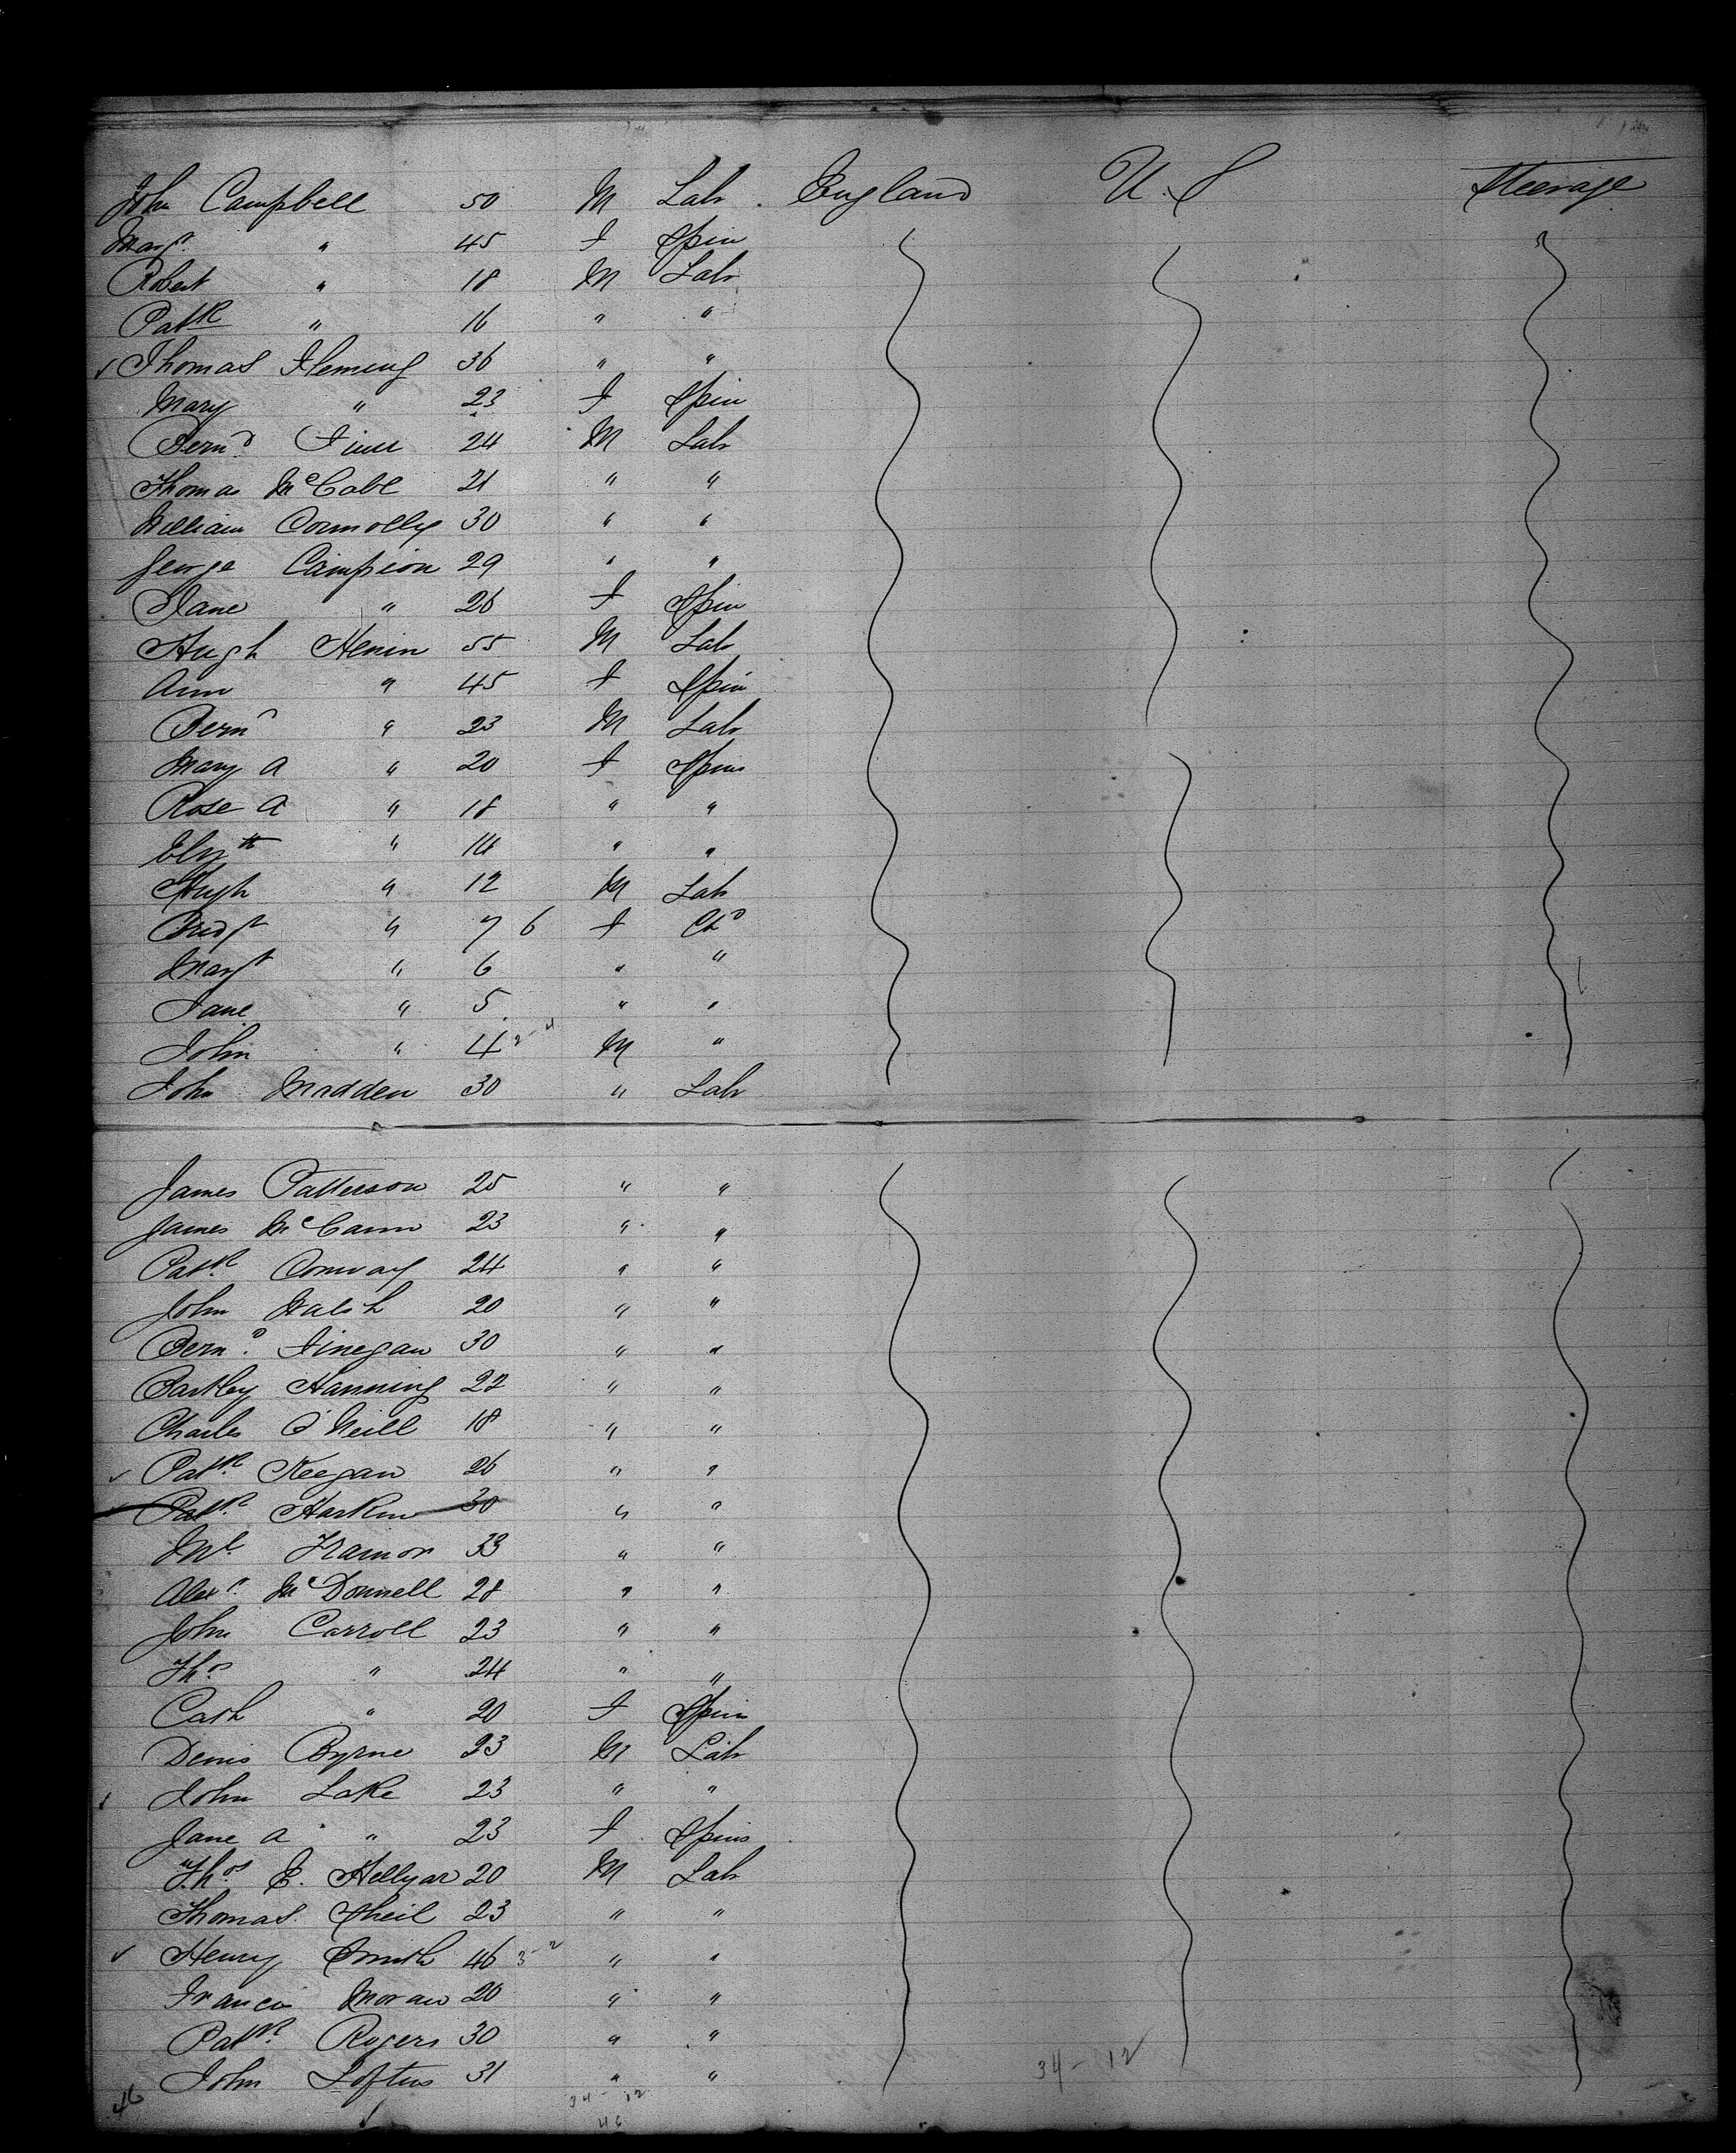 John Campbell 50 M Lab. England U.S Steerage
Margt " 45 F Spin
Robert " 18 M Lab
Patk " 16 " "
✓ Thomas Fleming 36 " "
Mary " 23 F Spin
Bernd Finn 24 M Lab
Thomas McCabe 21 " "
William Connolly 30 " "
George Campion 29 " "
Jane " 26 F Spin
Hugh Henin 55 M Lab
Ann " 45 F Spin
Bernd " 23 M Lab
Mary A " 20 F Spins
Rose A " 18 " "
Elizth " 14 " "
Hugh " 12 M Lab
Bridgt " 7 6 F Chd
Margt " 6 " "
Jane " 5 " "
John " 4 M "
John Madden 30 " Lab
James Patterson 25 " "
James McCann 23 " "
Patk Conway 24 " "
John Walsh 20 " "
Bernd Finegan 30 " "
Bartley Hanning 22 " "
Charles O'Neill 18 " "
✓ Patk Keegan 26 " "
Patk Harkin 30 " "
Ml Trainor 33 " "
Alexr McDonnell 28 " "
John Carroll 23 " "
Thos " 24 " "
Cath " 20 F Spin
Denis Byrne 23 M Lab
✓ John Lake 23 " "
Jane A " 23 F Spins
Thos E. Hellyar 20 M Lab
Thomas Sheil 23 " "
✓ Henry Smith 46 3-2 " "
Francis Moran 20 " "
Patk Rogers 30 " "
John Loftus 31 " "
34 - 12
46 34 - 12
46